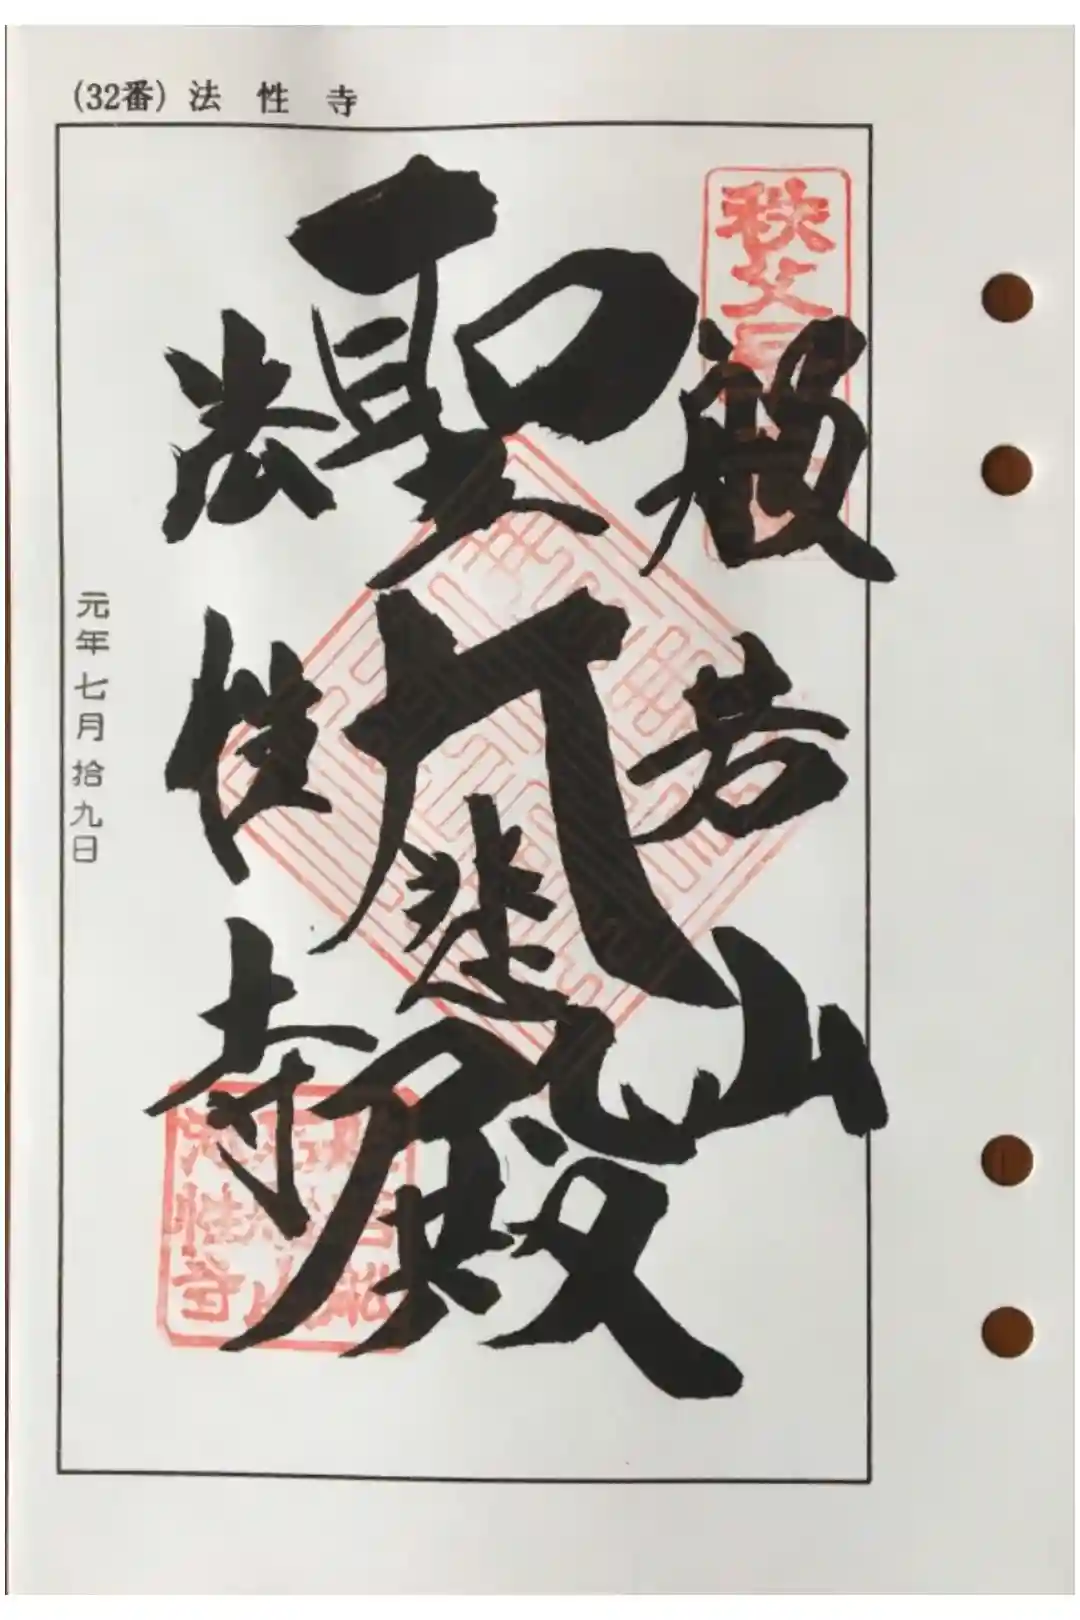 (32番) 法性寺
秩父
般若山
聖大悲殿
法性寺
元年七月拾九日
般若船
石船山
法性寺